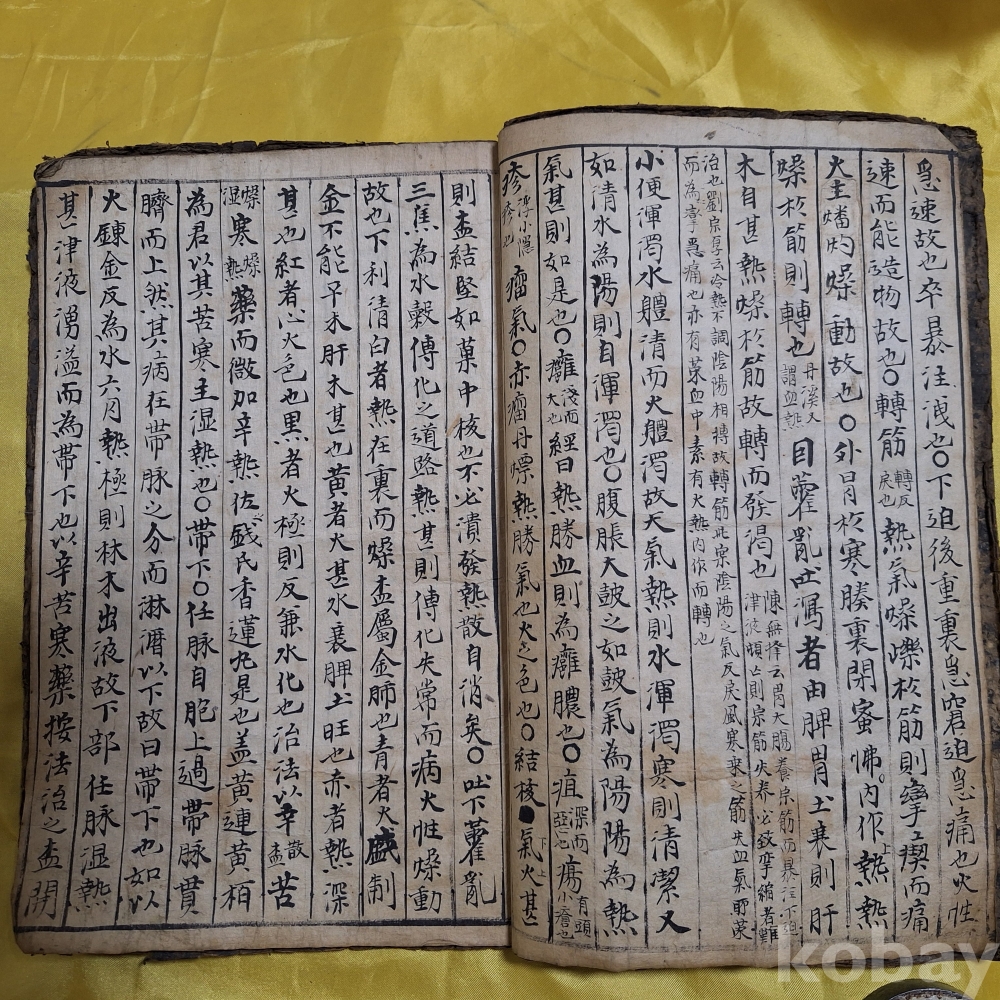 急速故也卒暴注洩也〇下迫後重裏急窘迫急痛也火性
速而能造物故也〇轉筋轉反戾也熱氣燥爍於筋則攣瘈而痛
火主燔灼燥動故也〇外冐於寒腠裏閉蜜怫内作熱熱上
燥於筋則轉也丹溪又謂血熱目藿亂吐瀉者由脾胃土衰則肝
木自甚熱燥於筋故轉而發渴也陳無擇云胃大腸養宗筋而暴注下迫津液頓亡則宗筋失养必致孪縮者難
治也劉宗厚云冷熱不調陰陽相摶故轉筋此宗陰陽之氣反戾風寒乗之筋失血氣所荣
而為攣愚痛也亦有荣血中素有火熱内作而轉也
小便渾濁水體清而火體濁故天氣熱則水渾濁寒則清潔又
如清水為陽則自渾濁也〇腹脹大鼓之如鼓氣為陽陽為熱
氣甚則如是也〇癰淺而大也經曰熱勝血則為癰膿也〇疽深而惡也瘍有頭小瘡也
疹浮小隱疹也瘤氣〇赤瘤丹熛熱勝氣也火之色也〇結核氣火甚下上
則盂結堅如菓中核也不必潰發熱散自消矣〇吐下藿亂
三焦為水穀傳化之道路熱甚則傳化失常而病火性燥動
故也下利清白者熱在裏而燥盂屬金肺也青者火盛制
金不能平木肝木甚也黃者火甚水衰脾土旺也赤者熱深
甚也紅者心火色也黒者火極則反兼水化也治法以辛散盂苦
燥湿寒燥熱藥而微加辛熱佐錢民香蓮丸是也盖黄連黄柏
為君以其苦寒主湿熱也〇帶下〇任脉自胞上過帶脉貫
臍而上然其病在帶脉之分而淋瀝以下故曰帶下也如以
火鍊金反為水六月熱極則林木出液故下部任脉湿熱
甚津液湧溢而為帶下也以辛苦寒藥按法治之盂開
kobay